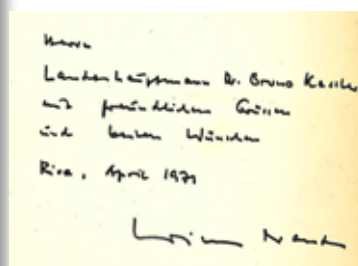 Herrn
Landeshauptmann Dr. Bruno Kessler
mit freundlichen Grüssen
und besten Wünschen
Riva, April 1971